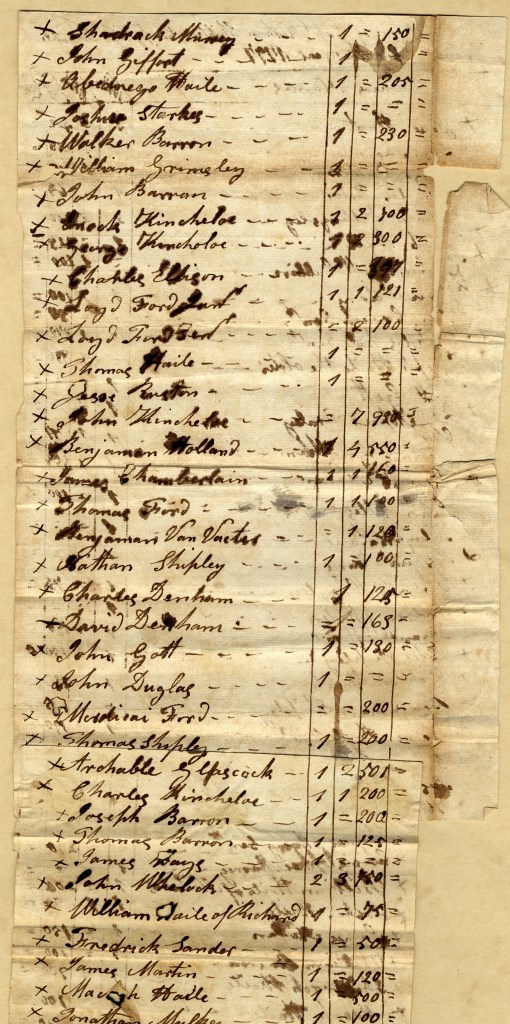 x Shadrack Murrey 1 = 150 =
x John Giffort - - 1
x Abednego Haile - - - 1 = 205
x Joshua Starkes - - - 1 = = =
x Walker Barron - - - - 1 = 230
x William Grimsley - - - 1 = =
x John Barron - - - 1 = =
x Enock Kincheloe - - - 1 2 300
x George Kincheloe - - - 1 2 300
x Charles Ellison - - - 1 =
x Loyd Ford Junr 1 1 121
x Loyd Ford Senr = 2 100
x Thomas Haile - - 1 = =
x Ruston - - 1 = =
x John Kincheloe - - = 7
x Benjaman Holland - - 4 550
x James Chamberlain - - 1 1
x Thomas Ford = - - - 1 1 100
x Benjaman Van Vactor = 1 120
x Nathan Shipley - - - 1 = 100
x Charles Denham - - - - 1 125
x David Denham = - - - = 163
x John Gott - - - - 1 = 130
x John Duglas - - - - 1 = = =
x Mordicai Ford - - - = = 200
x Thomas Shipley - - - - 1 = 200
x Archable Glascock - - 1 2 501 =
x Charles Kincheloe - - 1 1 200 =
x Joseph Barron - - - 1 = 200 =
x Thomas Barron - - - 1 = 125 =
x James Hays - - - 1 = = =
x John Whelock - - 2 3 750 =
x William Haile of Richard 1 = 75 =
x Fredrick Sander - - - 1 = 50 =
x James Martin - - - - 1 = 120 =
x Haile - - - 1 = 500 =
x Jonathan Mulkey 1 = 100 =